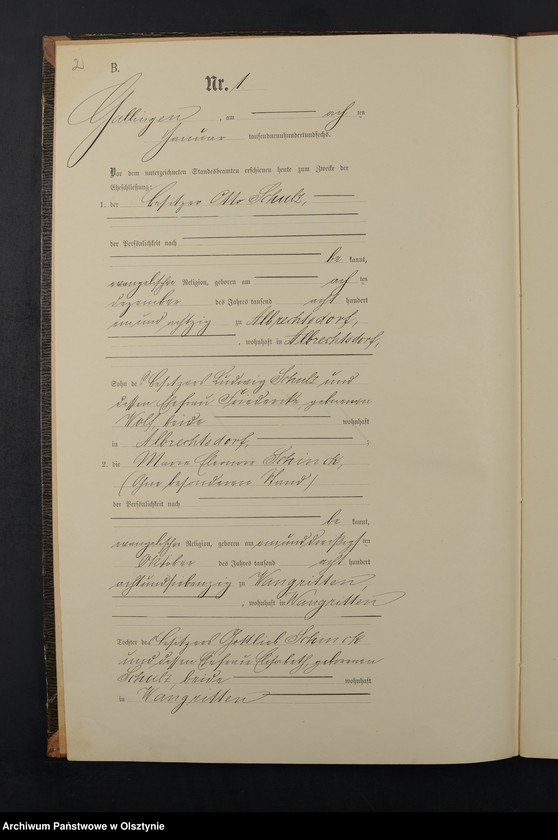 2
B.
Nr. 1
Gallingen, am ach ten
Januar tausendneunhundertundsechs.
Vor dem unterzeichneten Standesbeamten erschienen heute zum Zwecke der
Eheschließung:
1. der Besitzer Otto Schulz,
der Persönlichkeit nach
be kannt,
evangelischer Religion, geboren am ach ten
Dezember des Jahres tausend acht hundert
einundachtzig zu Albrechtsdorf,
, wohnhaft in Albrechtsdorf,
Sohn des Besitzers Ludwig Schulz und
dessen Ehefrau Friedericke geborenen
Wolf, beide wohnhaft
in Albrechtsdorf, ;
2. die Marie Eleonore Schinck,
(Ohne besonderen Stand)
der Persönlichkeit nach
be kannt,
evangelischer Religion, geboren am einunddreißigs ten
Oktober des Jahres tausend acht hundert
achtundsiebenzig zu Wangritten
, wohnhaft in Wangritten
Tochter des Besitzers Gottlieb Schinck
und dessen Ehefrau Elisabeth, geborenen
Schulz, beide wohnhaft
in Wangritten
Archiwum Państwowe w Olsztynie